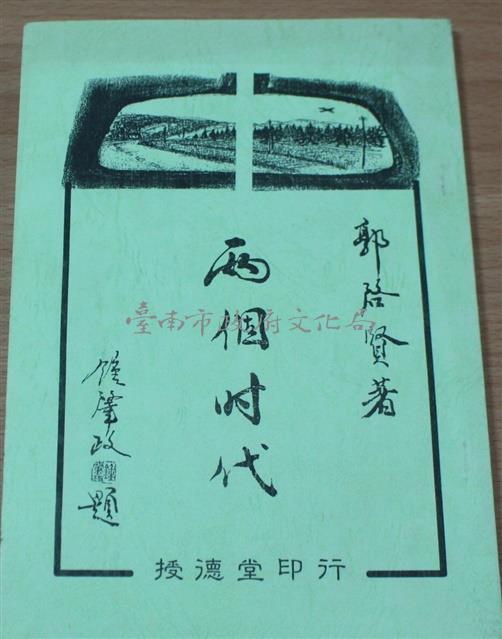 郭啓賢著
兩個时代
鍾肇政題
授德堂印行
臺南市政府文化局